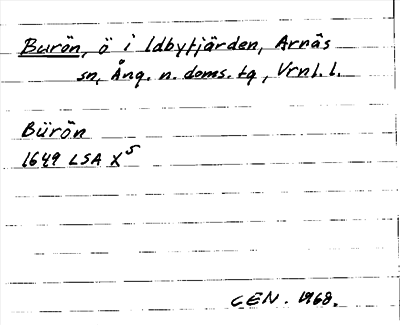 Burön, ö i Idbyfjärden, Arnäs
sn, Ång. n. doms. tg, Vrnl. l.
Bürön
1649 LSA X5
CEN. 1968.